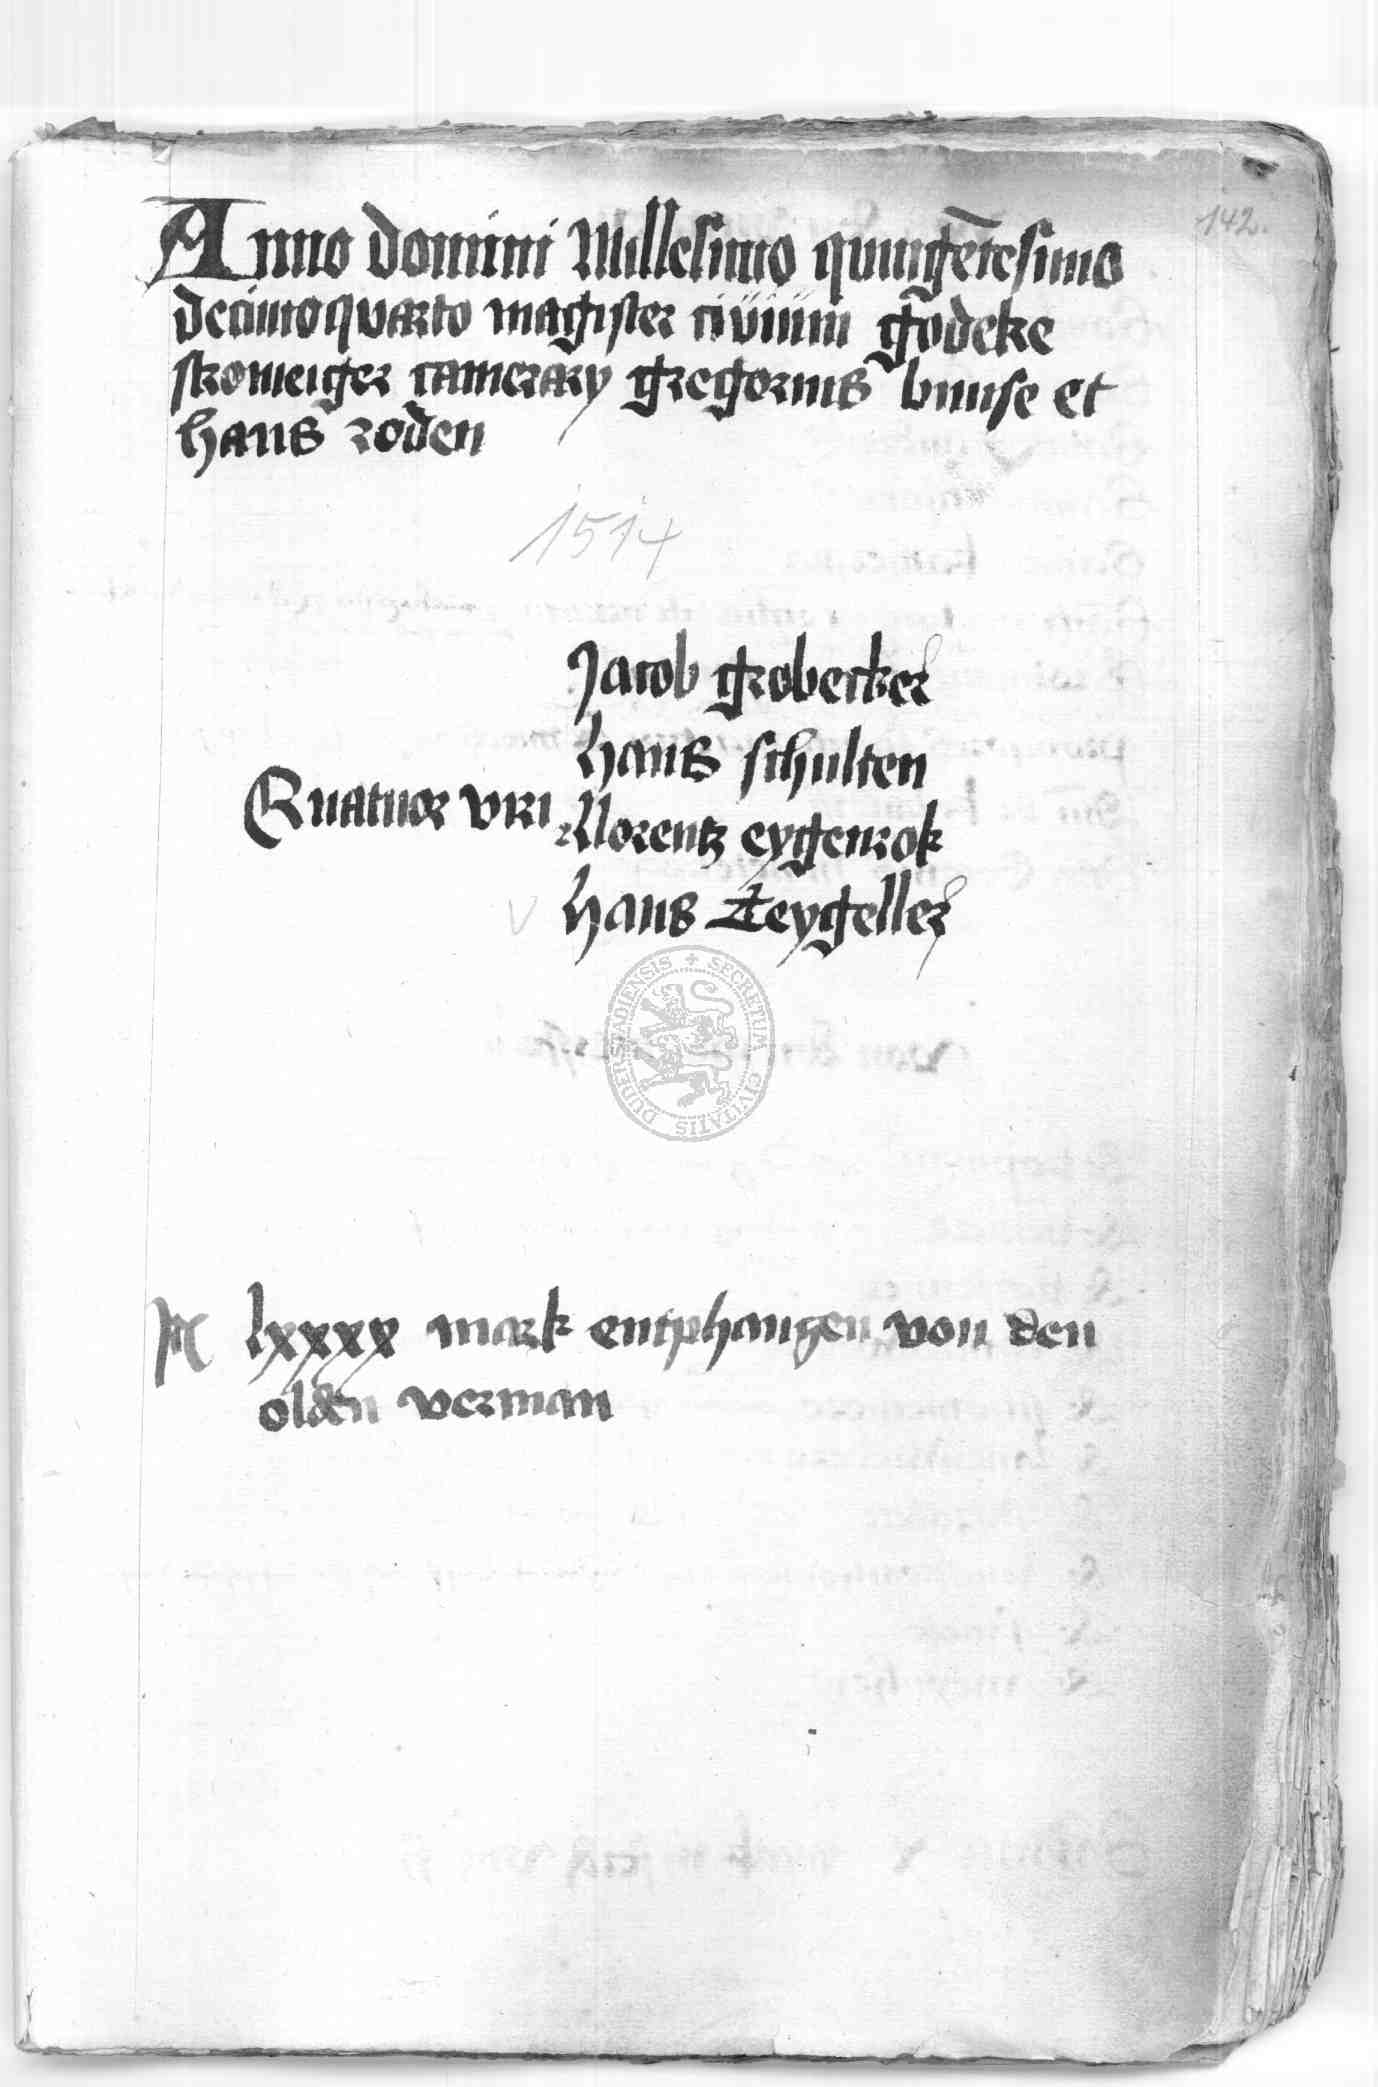 142.
Anno domini Millesimo quingentesimo
decimoquarto magister civium godeke
stromeiger camerary gregorius bunse et
hans roden
1514
Jacob grobecker
hans schulten
Quatuor viri
llorentz eygenrok
hans Zeygeller
lxxxx mark entphangen von den
olden verman
SECRETUM CIVITATIS DUDERSTADIENSIS